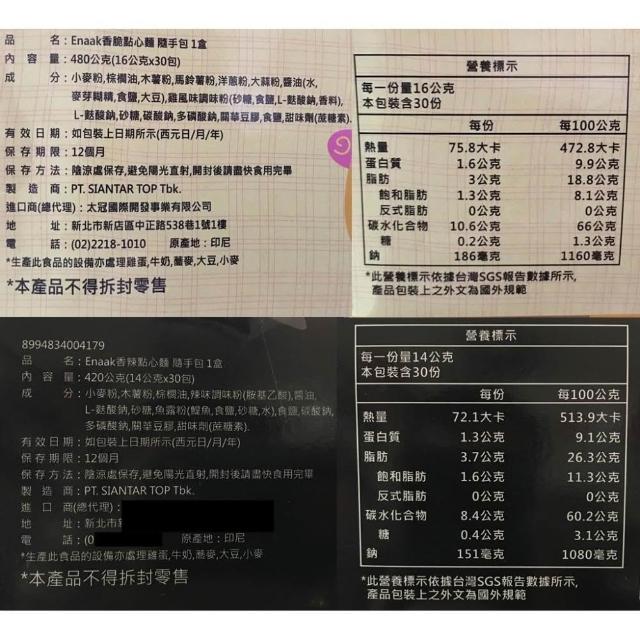 品　　名：Enaak香脆點心麵 隨手包 1盒
內 容 量：480公克(16公克x30包)
成　　分：小麥粉,棕櫚油,木薯粉,馬鈴薯粉,洋蔥粉,大蒜粉,醬油(水,
麥芽糊精,食鹽,大豆),雞風味調味粉(砂糖,食鹽,L-麩酸鈉,香料),
L-麩酸鈉,砂糖,碳酸鈉,多磷酸鈉,關華豆膠,食鹽,甜味劑(蔗糖素).
有效日期：如包裝上日期所示(西元日/月/年)
保存期限：12個月
保存方法：陰涼處保存,避免陽光直射,開封後請盡快食用完畢
製 造 商：PT. SIANTAR TOP Tbk.
進口商(總代理)：太冠國際開發事業有限公司
地　　址：新北市新店區中正路538巷1號1樓
電　　話：(02)2218-1010　原產地：印尼
*生產此食品的設備亦處理雞蛋,牛奶,蕎麥,大豆,小麥
*本產品不得拆封零售
營養標示
每一份量16公克
本包裝含30份
每份　每100公克
熱量　75.8大卡　472.8大卡
蛋白質　1.6公克　9.9公克
脂肪　3公克　18.8公克
飽和脂肪　1.3公克　8.1公克
反式脂肪　0公克　0公克
碳水化合物　10.6公克　66公克
糖　0.2公克　1.3公克
鈉　186毫克　1160毫克
*此營養標示依據台灣SGS報告數據所示,
產品包裝上之外文為國外規範
8994834004179
品　　名：Enaak香辣點心麵 隨手包 1盒
內 容 量：420公克(14公克x30包)
成　　分：小麥粉,木薯粉,棕櫚油,辣味調味粉(胺基乙酸),醬油,
L-麩酸鈉,砂糖,魚露粉(鯷魚,食鹽,砂糖,水),食鹽,碳酸鈉,
多磷酸鈉,關華豆膠,甜味劑(蔗糖素).
有效日期：如包裝上日期所示(西元日/月/年)
保存期限：12個月
保存方法：陰涼處保存,避免陽光直射,開封後請盡快食用完畢
製 造 商：PT. SIANTAR TOP Tbk.
進 口 商(總代理)：
地　　址：新北市
電　　話：(0　原產地：印尼
*生產此食品的設備亦處理雞蛋,牛奶,蕎麥,大豆,小麥
*本產品不得拆封零售
營養標示
每一份量14公克
本包裝含30份
每份　每100公克
熱量　72.1大卡　513.9大卡
蛋白質　1.3公克　9.1公克
脂肪　3.7公克　26.3公克
飽和脂肪　1.6公克　11.3公克
反式脂肪　0公克　0公克
碳水化合物　8.4公克　60.2公克
糖　0.4公克　3.1公克
鈉　151毫克　1080毫克
*此營養標示依據台灣SGS報告數據所示,
產品包裝上之外文為國外規範